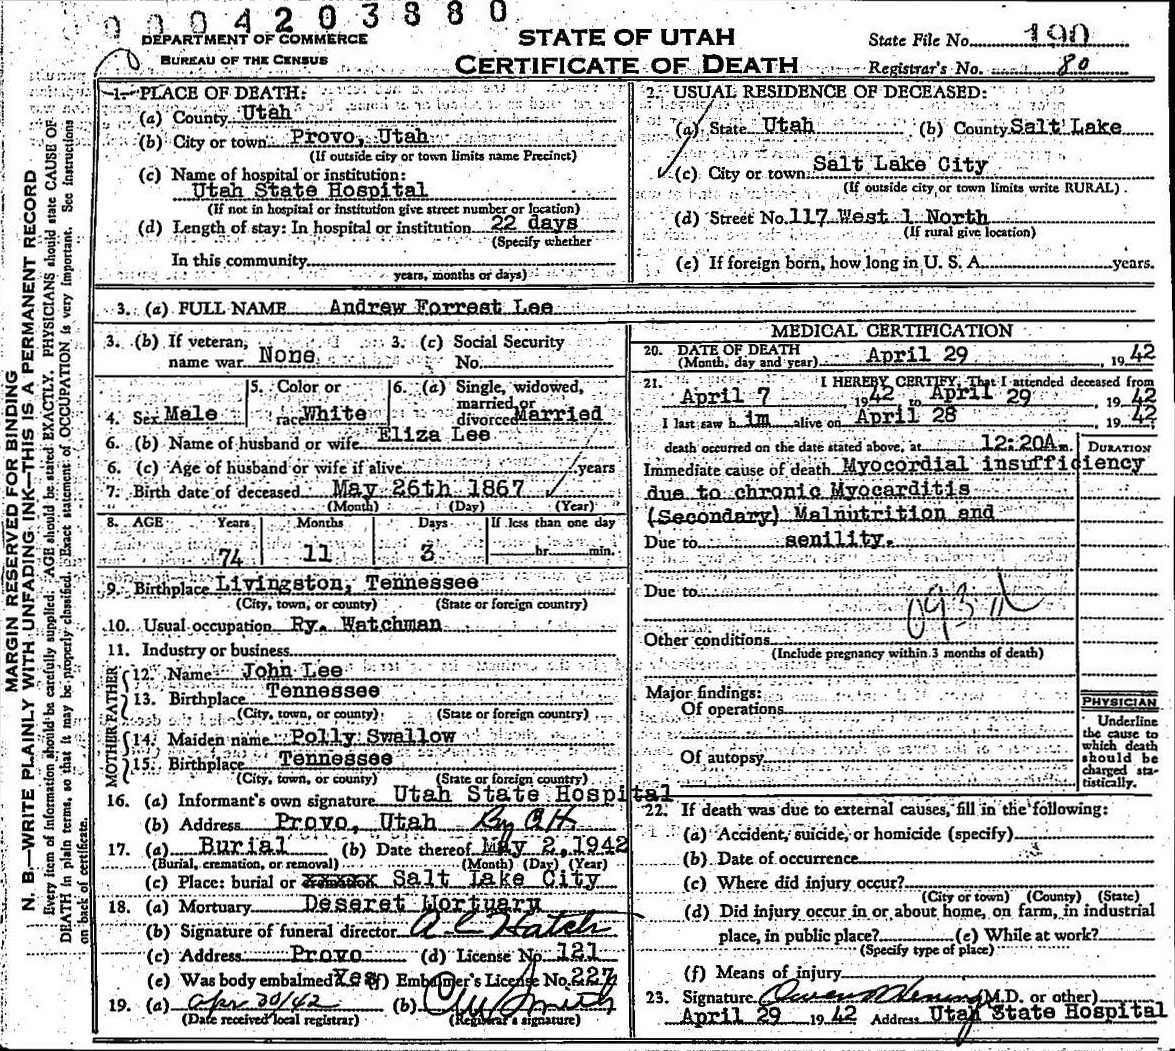 0004203880
DEPARTMENT OF COMMERCE
BUREAU OF THE CENSUS
STATE OF UTAH
CERTIFICATE OF DEATH
State File No. 190
Registrar's No. 80
MARGIN RESERVED FOR BINDING
N. B.—WRITE PLAINLY WITH UNFADING INK—THIS IS A PERMANENT RECORD
Every item of information should be carefully supplied. AGE should be stated EXACTLY. PHYSICIANS should state CAUSE OF
DEATH in plain terms, so that it may be properly classified. Exact statement of OCCUPATION is very important. See instructions
on back of certificate.
1. PLACE OF DEATH:
(a) County Utah
(b) City or town Provo, Utah
(If outside city or town limits name Precinct)
(c) Name of hospital or institution:
Utah State Hospital
(If not in hospital or institution give street number or location)
(d) Length of stay: In hospital or institution 22 days
(Specify whether
In this community
years, months or days)
2. USUAL RESIDENCE OF DECEASED:
(a) State Utah (b) County Salt Lake
(c) City or town Salt Lake City
(If outside city or town limits write RURAL)
(d) Street No. 117 West 1 North
(If rural give location)
(e) If foreign born, how long in U. S. A. years.
3. (a) FULL NAME Andrew Forrest Lee
3. (b) If veteran, 3. (c) Social Security
name war None No.
4. Sex Male 5. Color or race White 6. (a) Single, widowed, married or divorced Married
6. (b) Name of husband or wife Eliza Lee
6. (c) Age of husband or wife if alive years
7. Birth date of deceased May 26th 1867
(Month) (Day) (Year)
8. AGE Years Months Days If less than one day
74 11 3 hr. min.
9. Birthplace Livingston, Tennessee
(City, town, or county) (State or foreign country)
10. Usual occupation Ry. Watchman
11. Industry or business
FATHER
12. Name John Lee
13. Birthplace Tennessee
(City, town, or county) (State or foreign country)
MOTHER
14. Maiden name Polly Swallow
15. Birthplace Tennessee
(City, town, or county) (State or foreign country)
16. (a) Informant's own signature Utah State Hospital
(b) Address Provo, Utah
17. (a) Burial (b) Date thereof May 2, 1942
(Burial, cremation, or removal) (Month) (Day) (Year)
(c) Place: burial or xxxxx Salt Lake City
18. (a) Mortuary Deseret Mortuary
(b) Signature of funeral director A C Hatch
(c) Address Provo (d) License No. 121
(e) Was body embalmed Yes (f) Embalmer's License No. 227
19. (a) Apr 30/42 (b) Smith
(Date received local registrar) (Registrar's signature)
MEDICAL CERTIFICATION
20. DATE OF DEATH
(Month, day and year) April 29, 1942
21. I HEREBY CERTIFY, That I attended deceased from
April 7 1942 to April 29, 1942
I last saw him alive on April 28, 1942
death occurred on the date stated above, at 12:20A m. DURATION
Immediate cause of death Myocordial insufficiency
due to chronic Myocarditis
(Secondary) Malnutrition and
Due to senility.
Due to
Other conditions
(Include pregnancy within 3 months of death)
Major findings:
Of operations
Of autopsy
PHYSICIAN
Underline
the cause to
which death
should be
charged sta-
tistically.
22. If death was due to external causes, fill in the following:
(a) Accident, suicide, or homicide (specify)
(b) Date of occurrence
(c) Where did injury occur?
(City or town) (County) (State)
(d) Did injury occur in or about home, on farm, in industrial
place, in public place? (e) While at work?
(Specify type of place)
(f) Means of injury
23. Signature Owen (M.D. or other)
April 29 1942 Address Utah State Hospital